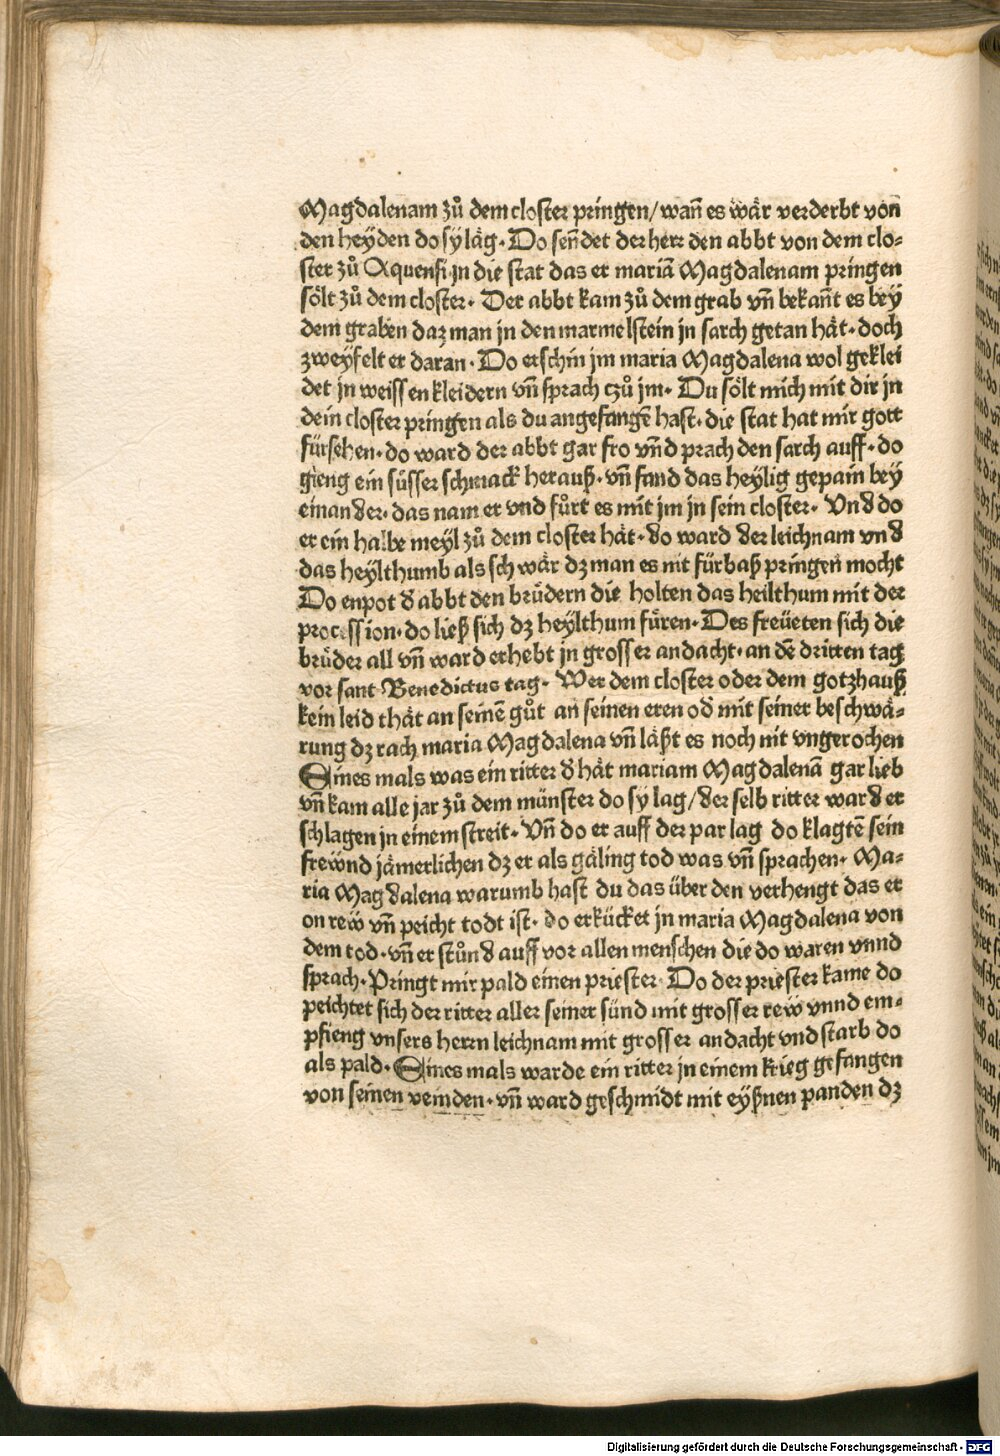 Magdalenam zuͦ dem closter pringen/wañ es waͤr verderbt von
den heyden do sy laͤg. Do sen̄det der herr den abbt von dem clo⸗
ster zuͦ Aquensi in die stat das er mariā Magdalenam pringen
soͤlt zuͦ dem closter. Der abbt kam zuͦ dem grab vn̄ bekañt es bey
dem graben daz man in den marmelstein in sarch getan haͤt. doch
zweyfelt er daran. Do erschin jm maria Magdalena wol geklei
det in weissen kleidern vn̄ sprach czuͦ jm. Du soͤlt mich mit dir in
dein closter pringen als du angefangē hast. die stat hat mir gott
fürsehen. do ward der abbt gar fro vn̄d prach den sarch auff. do
gieng ein suͤsser schmack herauß. vn̄ fand das heylig gepain bey
einander. das nam er vnd fuͤrt es mit jm in sein closter. Vnd do
er ein halbe meyl zuͦ dem closter haͤt. do ward der leichnam vnd
das heylthumb als schwaͤr dz man es nit fürbaß pringen mocht
Do enpot d abbt den bruͤdern die holten das heilthum mit der
procession. do ließ sich dz heylthum fuͤren. Des freüeten sich die
bruͤder all vn̄ ward erhebt in grosser andacht. an dē dritten tag
vor sant Benedictus tag. Wer dem closter oder dem gotzhauß
kein leid thaͤt an seinē guͦt an seinen eren od̄ mit seiner beschwaͤ⸗
rung dz rach maria Magdalena vn̄ laͤßt es noch nit vngerochen
Eines mals was ein ritter d haͤt mariam Magdalenā gar lieb
vn̄ kam alle jar zuͦ dem münster do sy lag/der selb ritter ward er
schlagen in einem streit. Vn̄ do er auff der par lag do klagtē sein
frewnd jaͤmerlichen dz er als gaͤling tod was vn̄ sprachen. Ma⸗
ria Magdalena warumb hast du das über den verhengt das er
on rew vn̄ peicht todt ist. do erkücket jn maria Magdalena von
dem tod. vn̄ er stuͦnd auff vor allen menschen die do waren vnnd
sprach. Pringt mir pald einen priester. Do der priester kame do
peichtet sich der ritter aller seiner sünd mit grosser rew vnnd em⸗
pfieng vnsers herrn leichnam mit grosser andacht vnd starb do
als pald. Eines mals warde ein ritter in einem krieg gefangen
von seinen veinden. vn̄ ward geschmidt mit eyßnen panden dz
Digitalisierung gefördert durch die Deutsche Forschungsgemeinschaft - DFG